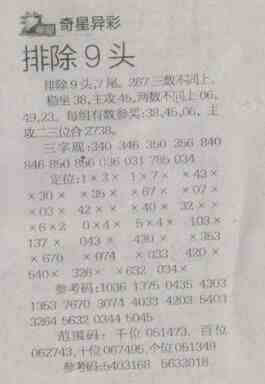 奇星异彩
排除9头
排除9头,7尾。267三数不同上。
稳坐38,主攻45,两数不同上06,
49,23。每组有数参买:38,45,06。主
攻二三位合2738。
三字现:340 346 350 356 840
846 850 856 036 031 785 034
定位:1×3× 1×7× ×43×
×30× ×35× ×67× ×07×
×03× 42×× ×40× 32××
×6×2 0×4× 5×4× 103×
137× 043× 430× ×353
×670 ×074 ×033 420×
540× 326× ×632 034×
参考码:1036 1375 0435 4303
1353 7670 3074 4033 4203 5403
3264 5632 0344 5045
范围码:千位051423, 百位
062743,十位067495,个位051349
参考码:5403168 5633018